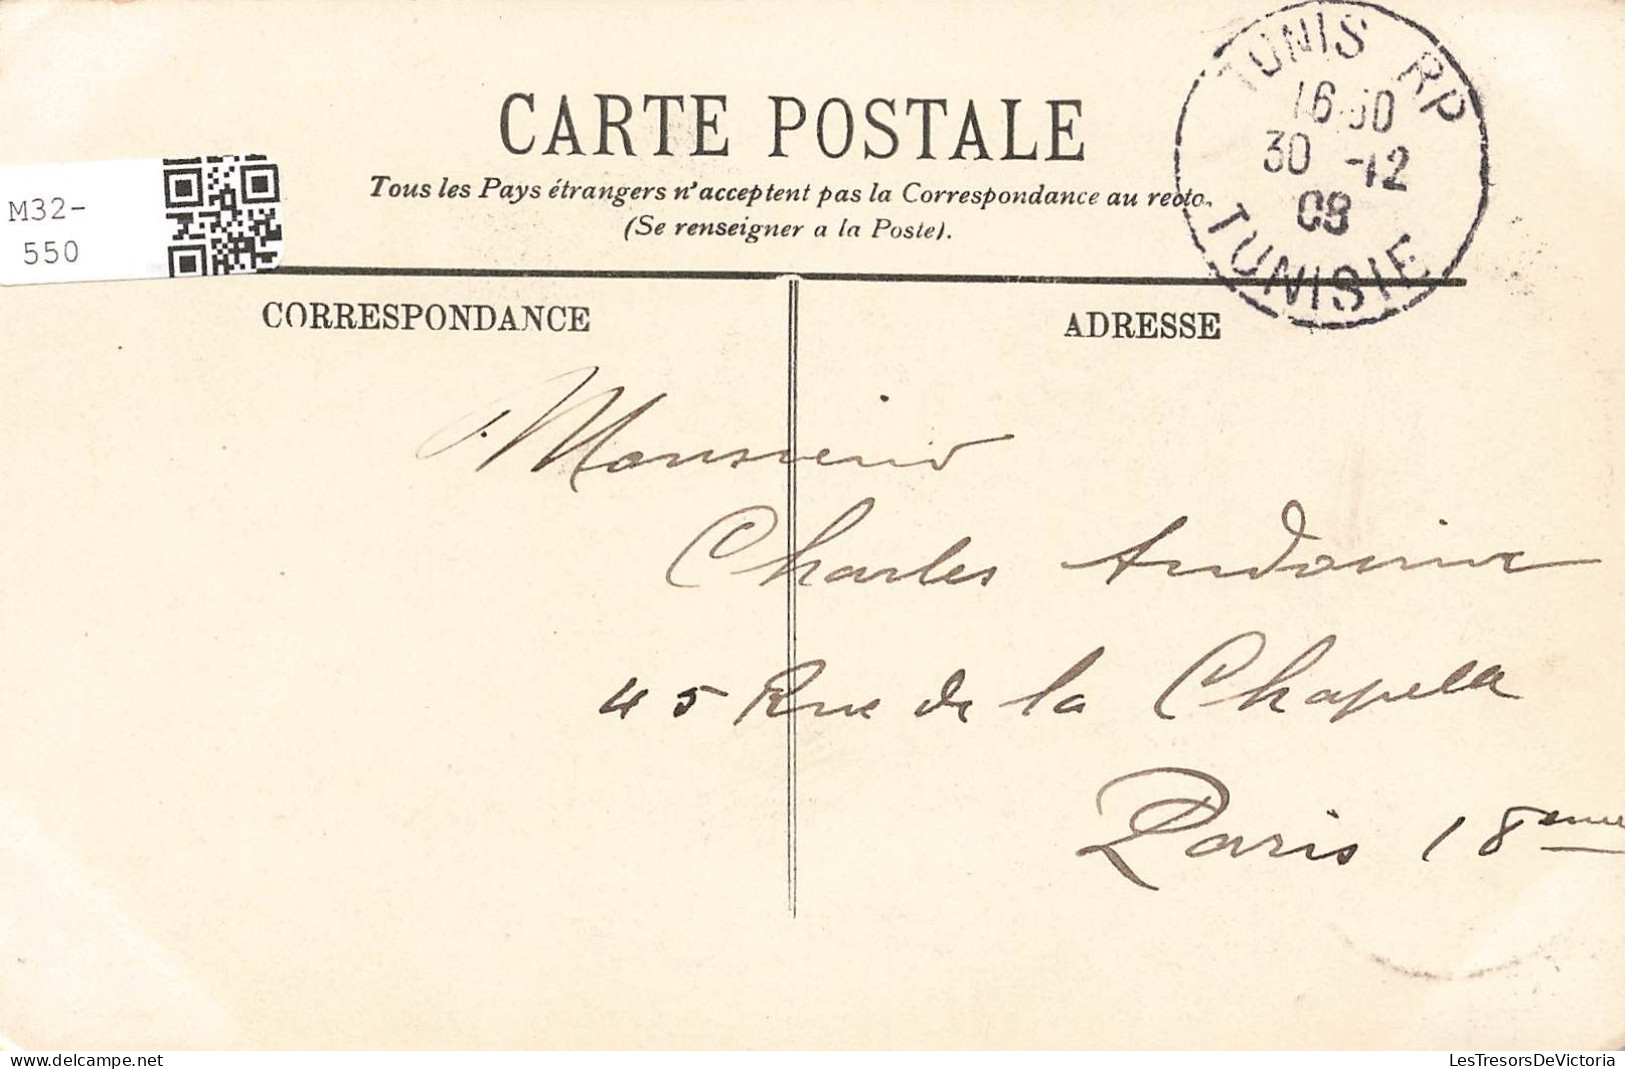 TUNIS RP
16
30 -12
08
TUNISIE
CARTE POSTALE
Tous les Pays étrangers n'acceptent pas la Correspondance au recto.
(Se renseigner a la Poste).
M32-
550
CORRESPONDANCE
ADRESSE
Monsieur
Charles Audoine
45 Rue de la Chapelle
Paris 18eme
LesTresorsDeVictoria
delcampe.net